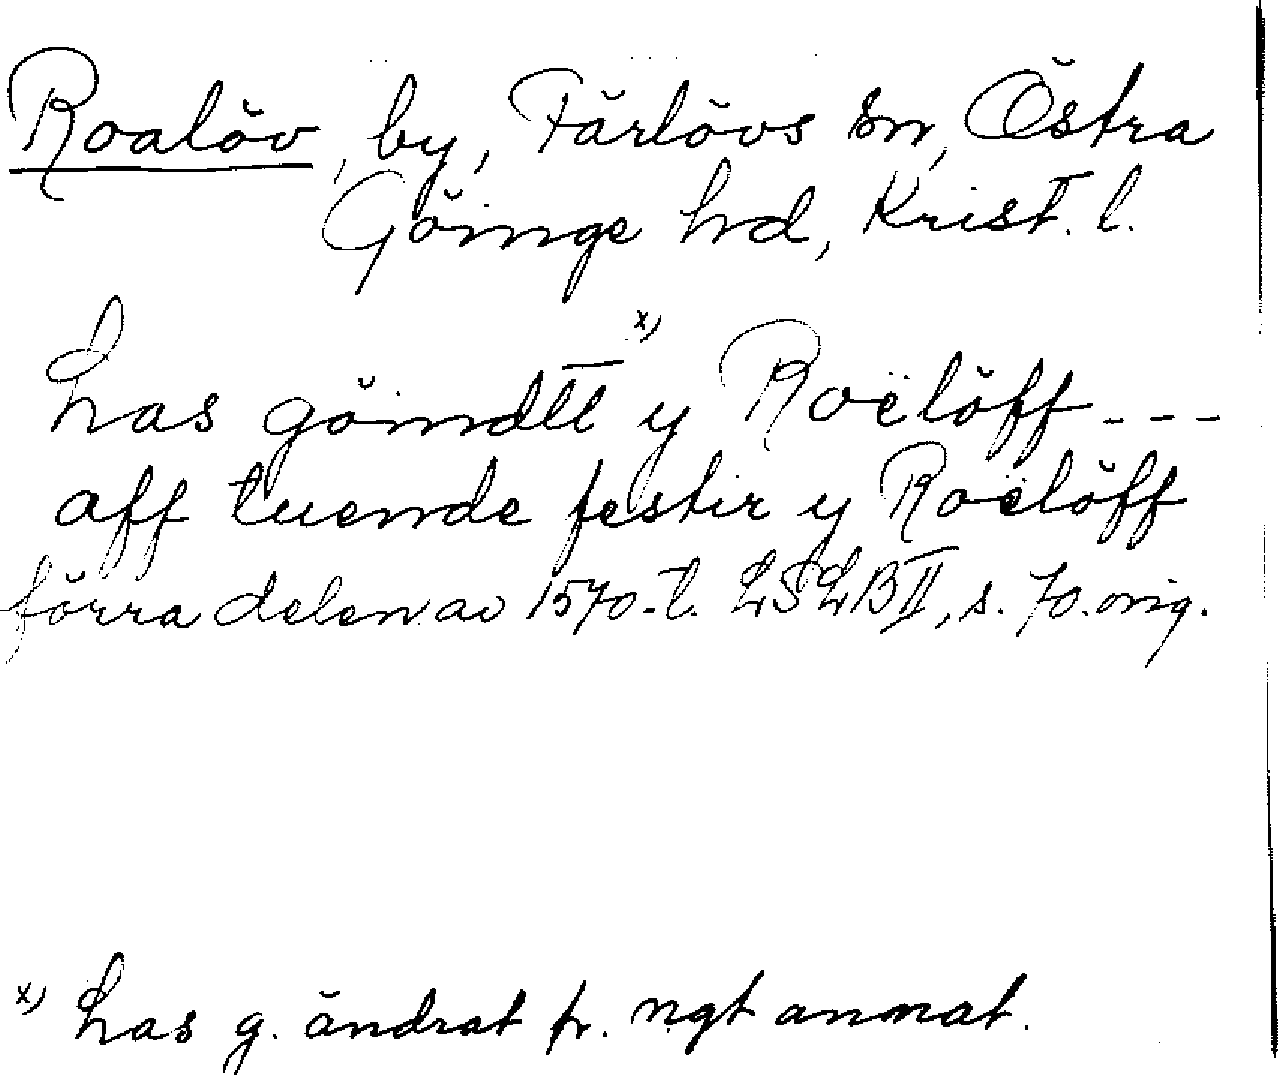 Roalöv, by, Färlövs sn, Östra
Göinge hd, Krist. l.
x)
Las göindtt y Roëlöff ---
aff tuende festir y Roëlöff
förra delen av 1570-t. LSLB II, s. 70. orig.
x) Las g. ändrat fr. ngt annat.